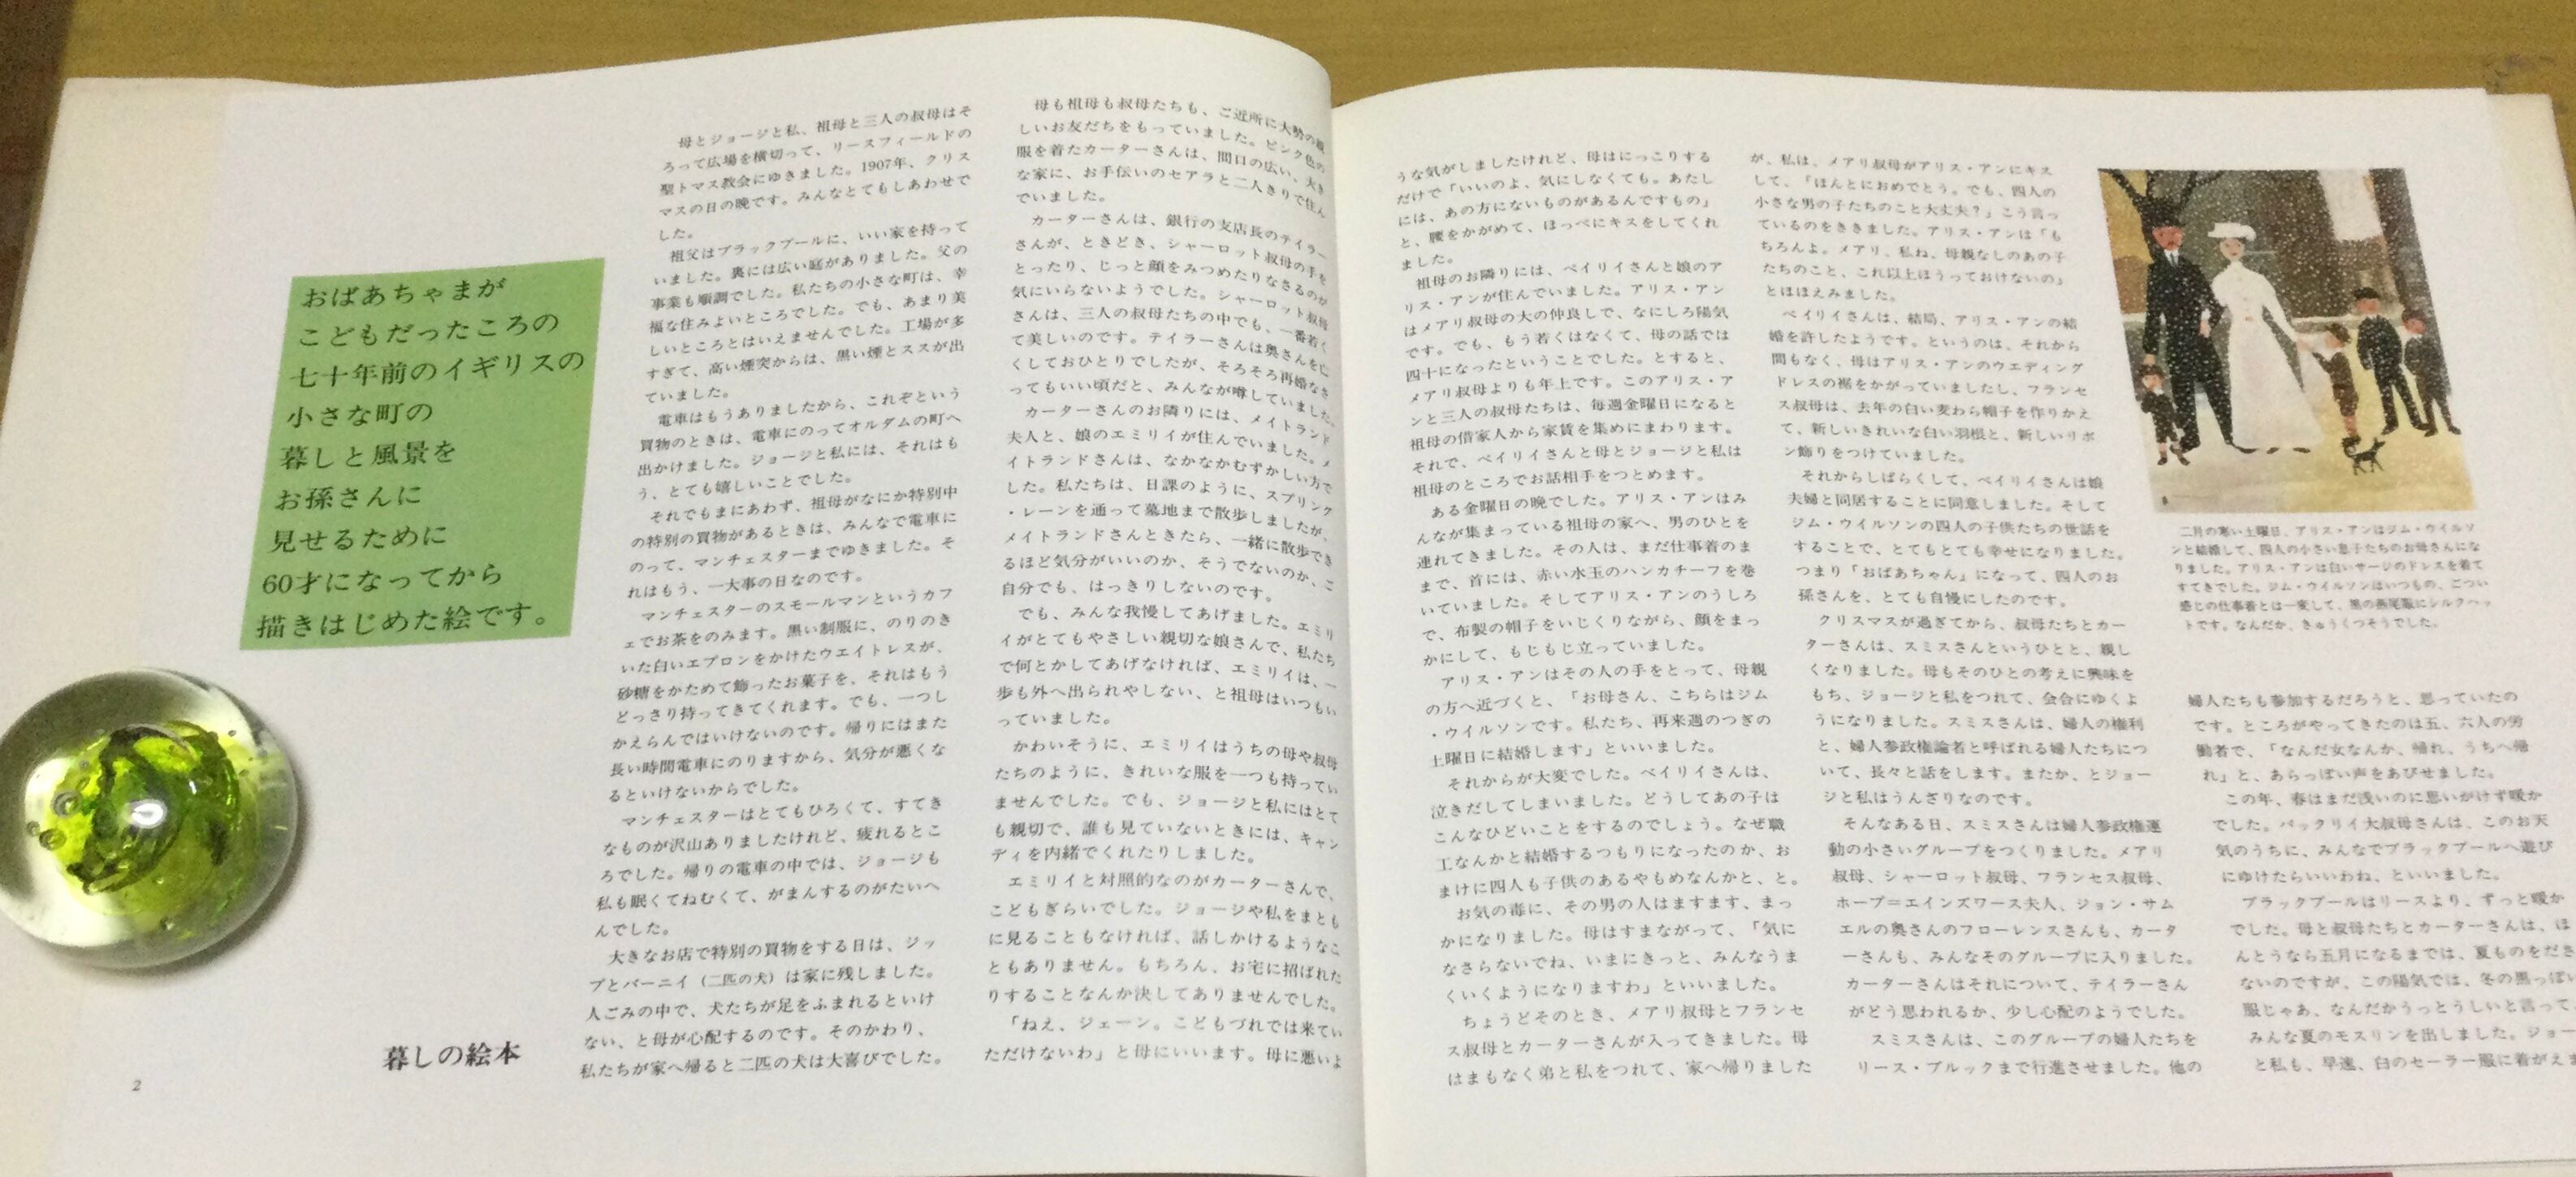 おばあちゃまが
こどもだったころの
七十年前のイギリスの
小さな町の
暮しと風景を
お孫さんに
見せるために
60才になってから
描きはじめた絵です。
暮しの絵本
2
母とジョージと私、祖母と三人の叔母はそ
ろって広場を横切って、リースフィールドの
聖トマス教会にゆきました。1907年、クリス
マスの日の晩です。みんなとてもしあわせで
した。
祖父はブラックプールに、いい家を持って
いました。裏には広い庭がありました。父の
事業も順調でした。私たちの小さな町は、幸
福な住みよいところでした。でも、あまり美
しいところとはいえませんでした。工場が多
すぎて、高い煙突からは、黒い煙とススが出
ていました。
電車はもうありましたから、これぞという
買物のときは、電車にのってオルダムの町へ
出かけました。ジョージと私には、それはも
う、とても嬉しいことでした。
それでもまにあわず、祖母がなにか特別中
の特別の買物があるときは、みんなで電車に
のって、マンチェスターまでゆきました。そ
れはもう、一大事の日なのです。
マンチェスターのスモールマンというカフ
ェでお茶をのみます。黒い制服に、のりのき
いた白いエプロンをかけたウエイトレスが、
砂糖をかためて飾ったお菓子を、それはもう
どっさり持ってきてくれます。でも、一つし
かえらんではいけないのです。帰りにはまた
長い時間電車にのりますから、気分が悪くな
るといけないからでした。
マンチェスターはとてもひろくて、すてき
なものが沢山ありましたけれど、疲れるとこ
ろでした。帰りの電車の中では、ジョージも
私も眠くてねむくて、がまんするのがたいへ
んでした。
大きなお店で特別の買物をする日は、ジッ
プとバーニイ(二匹の犬)は家に残しました。
人ごみの中で、犬たちが足をふまれるといけ
ない、と母が心配するのです。そのかわり、
私たちが家へ帰ると二匹の犬は大喜びでした。
母も祖母も叔母たちも、ご近所に大勢の親
しいお友だちをもっていました。ピンク色の
服を着たカーターさんは、間口の広い、大き
な家に、お手伝いのセアラと二人きりで住ん
でいました。
カーターさんは、銀行の支店長のテイラー
さんが、ときどき、シャーロット叔母の手を
とったり、じっと顔をみつめたりなさるのが
気にいらないようでした。シャーロット叔母
さんは、三人の叔母たちの中でも、一番若く
て美しいのです。テイラーさんは奥さんを亡
くしておひとりでしたが、そろそろ再婚なさ
ってもいい頃だと、みんなが噂していました。
カーターさんのお隣りには、メイトランド
夫人と、娘のエミリイが住んでいました。メ
イトランドさんは、なかなかむずかしい方で
した。私たちは、日課のように、スプリング
・レーンを通って墓地まで散歩しましたが、
メイトランドさんときたら、一緒に散歩でき
るほど気分がいいのか、そうでないのか、ご
自分でも、はっきりしないのです。
でも、みんな我慢してあげました。エミリ
イがとてもやさしい親切な娘さんで、私たち
で何とかしてあげなければ、エミリイは、一
歩も外へ出られやしない、と祖母はいつもい
っていました。
かわいそうに、エミリイはうちの母や叔母
たちのように、きれいな服を一つも持ってい
ませんでした。でも、ジョージと私にはとて
も親切で、誰も見ていないときには、キャン
ディを内緒でくれたりしました。
エミリイと対照的なのがカーターさんで、
こどもぎらいでした。ジョージや私をまとも
に見ることもなければ、話しかけるようなこ
ともありません。もちろん、お宅に招ばれた
りすることなんか決してありませんでした。
「ねえ、ジェーン。こどもづれでは来てい
ただけないわ」と母にいいます。母に悪いよ
うな気がしましたけれど、母はにっこりする
だけで「いいのよ、気にしなくても。あたし
には、あの方にないものがあるんですもの」
と、腰をかがめて、ほっぺにキスをしてくれ
ました。
祖母のお隣りには、ベイリイさんと娘のア
リス・アンが住んでいました。アリス・アン
はメアリ叔母の大の仲良しで、なにしろ陽気
です。でも、もう若くはなくて、母の話では
四十になったということでした。とすると、
メアリ叔母よりも年上です。このアリス・ア
ンと三人の叔母たちは、毎週金曜日になると
祖母の借家人から家賃を集めにまわります。
それで、ベイリイさんと母とジョージと私は
祖母のところでお話相手をつとめます。
ある金曜日の晩でした。アリス・アンはみ
んなが集まっている祖母の家へ、男のひとを
連れてきました。その人は、まだ仕事着のま
まで、首には、赤い水玉のハンカチーフを巻
いていました。そしてアリス・アンのうしろ
で、布製の帽子をいじくりながら、顔をまっ
かにして、もじもじ立っていました。
アリス・アンはその人の手をとって、母親
の方へ近づくと、「お母さん、こちらはジム
・ウイルソンです。私たち、再来週のつぎの
土曜日に結婚します」といいました。
それからが大変でした。ベイリイさんは、
泣きだしてしまいました。どうしてあの子は
こんなひどいことをするのでしょう。なぜ職
工なんかと結婚するつもりになったのか、お
まけに四人も子供のあるやもめなんかと、と。
お気の毒に、その男の人はますます、まっ
かになりました。母はすまながって、「気に
なさらないでね、いまにきっと、みんなうま
くいくようになりますわ」といいました。
ちょうどそのとき、メアリ叔母とフランセ
ス叔母とカーターさんが入ってきました。母
はまもなく弟と私をつれて、家へ帰りました
が、私は、メアリ叔母がアリス・アンにキス
して、「ほんとにおめでとう。でも、四人の
小さな男の子たちのこと大丈夫?」こう言っ
ているのをききました。アリス・アンは「も
ちろんよ。メアリ、私ね、母親なしのあの子
たちのこと、これ以上ほうっておけないの」
とほほえみました。
ベイリイさんは、結局、アリス・アンの結
婚を許したようです。というのは、それから
間もなく、母はアリス・アンのウエディング
ドレスの裾をかがっていましたし、フランセ
ス叔母は、去年の白い麦わら帽子を作りかえ
て、新しいきれいな白い羽根と、新しいリボ
ン飾りをつけていました。
それからしばらくして、ベイリイさんは娘
夫婦と同居することに同意しました。そして
ジム・ウイルソンの四人の子供たちの世話を
することで、とてもとても幸せになりました。
つまり「おばあちゃん」になって、四人のお
孫さんを、とても自慢にしたのです。
クリスマスが過ぎてから、叔母たちとカー
ターさんは、スミスさんというひとと、親し
くなりました。母もそのひとの考えに興味を
もち、ジョージと私をつれて、会合にゆくよ
うになりました。スミスさんは、婦人の権利
と、婦人参政権論者と呼ばれる婦人たちにつ
いて、長々と話をします。またか、とジョー
ジと私はうんざりなのです。
そんなある日、スミスさんは婦人参政権運
動の小さいグループをつくりました。メアリ
叔母、シャーロット叔母、フランセス叔母、
ホープ=エインズワース夫人、ジョン・サム
エルの奥さんのフローレンスさんも、カータ
ーさんも、みんなそのグループに入りました。
カーターさんはそれについて、テイラーさん
がどう思われるか、少し心配のようでした。
スミスさんは、このグループの婦人たちを
リース・ブルックまで行進させました。他の
二月の寒い土曜日、アリス・アンはジム・ウイルソ
ンと結婚して、四人の小さい息子たちのお母さんにな
りました。アリス・アンは白いサージのドレスを着て
すてきでした。ジム・ウイルソンはいつもの、ごつい
感じの仕事着とは一変して、黒の燕尾服にシルクハッ
トです。なんだか、きゅうくつそうでした。
婦人たちも参加するだろうと、思っていたの
です。ところがやってきたのは五、六人の労
働者で、「なんだ女なんか、帰れ、うちへ帰
れ」と、あらっぽい声をあびせました。
この年、春はまだ浅いのに思いがけず暖か
でした。バックリイ大叔母さんは、このお天
気のうちに、みんなでブラックプールへ遊び
にゆけたらいいわね、といいました。
ブラックプールはリースより、ずっと暖か
でした。母と叔母たちとカーターさんは、ほ
んとうなら五月になるまでは、夏ものをださ
ないのですが、この陽気では、冬の黒っぽい
服じゃあ、なんだかうっとうしいと言って、
みんな夏のモスリンを出しました。ジョー
と私も、早速、白のセーラー服に着がえま